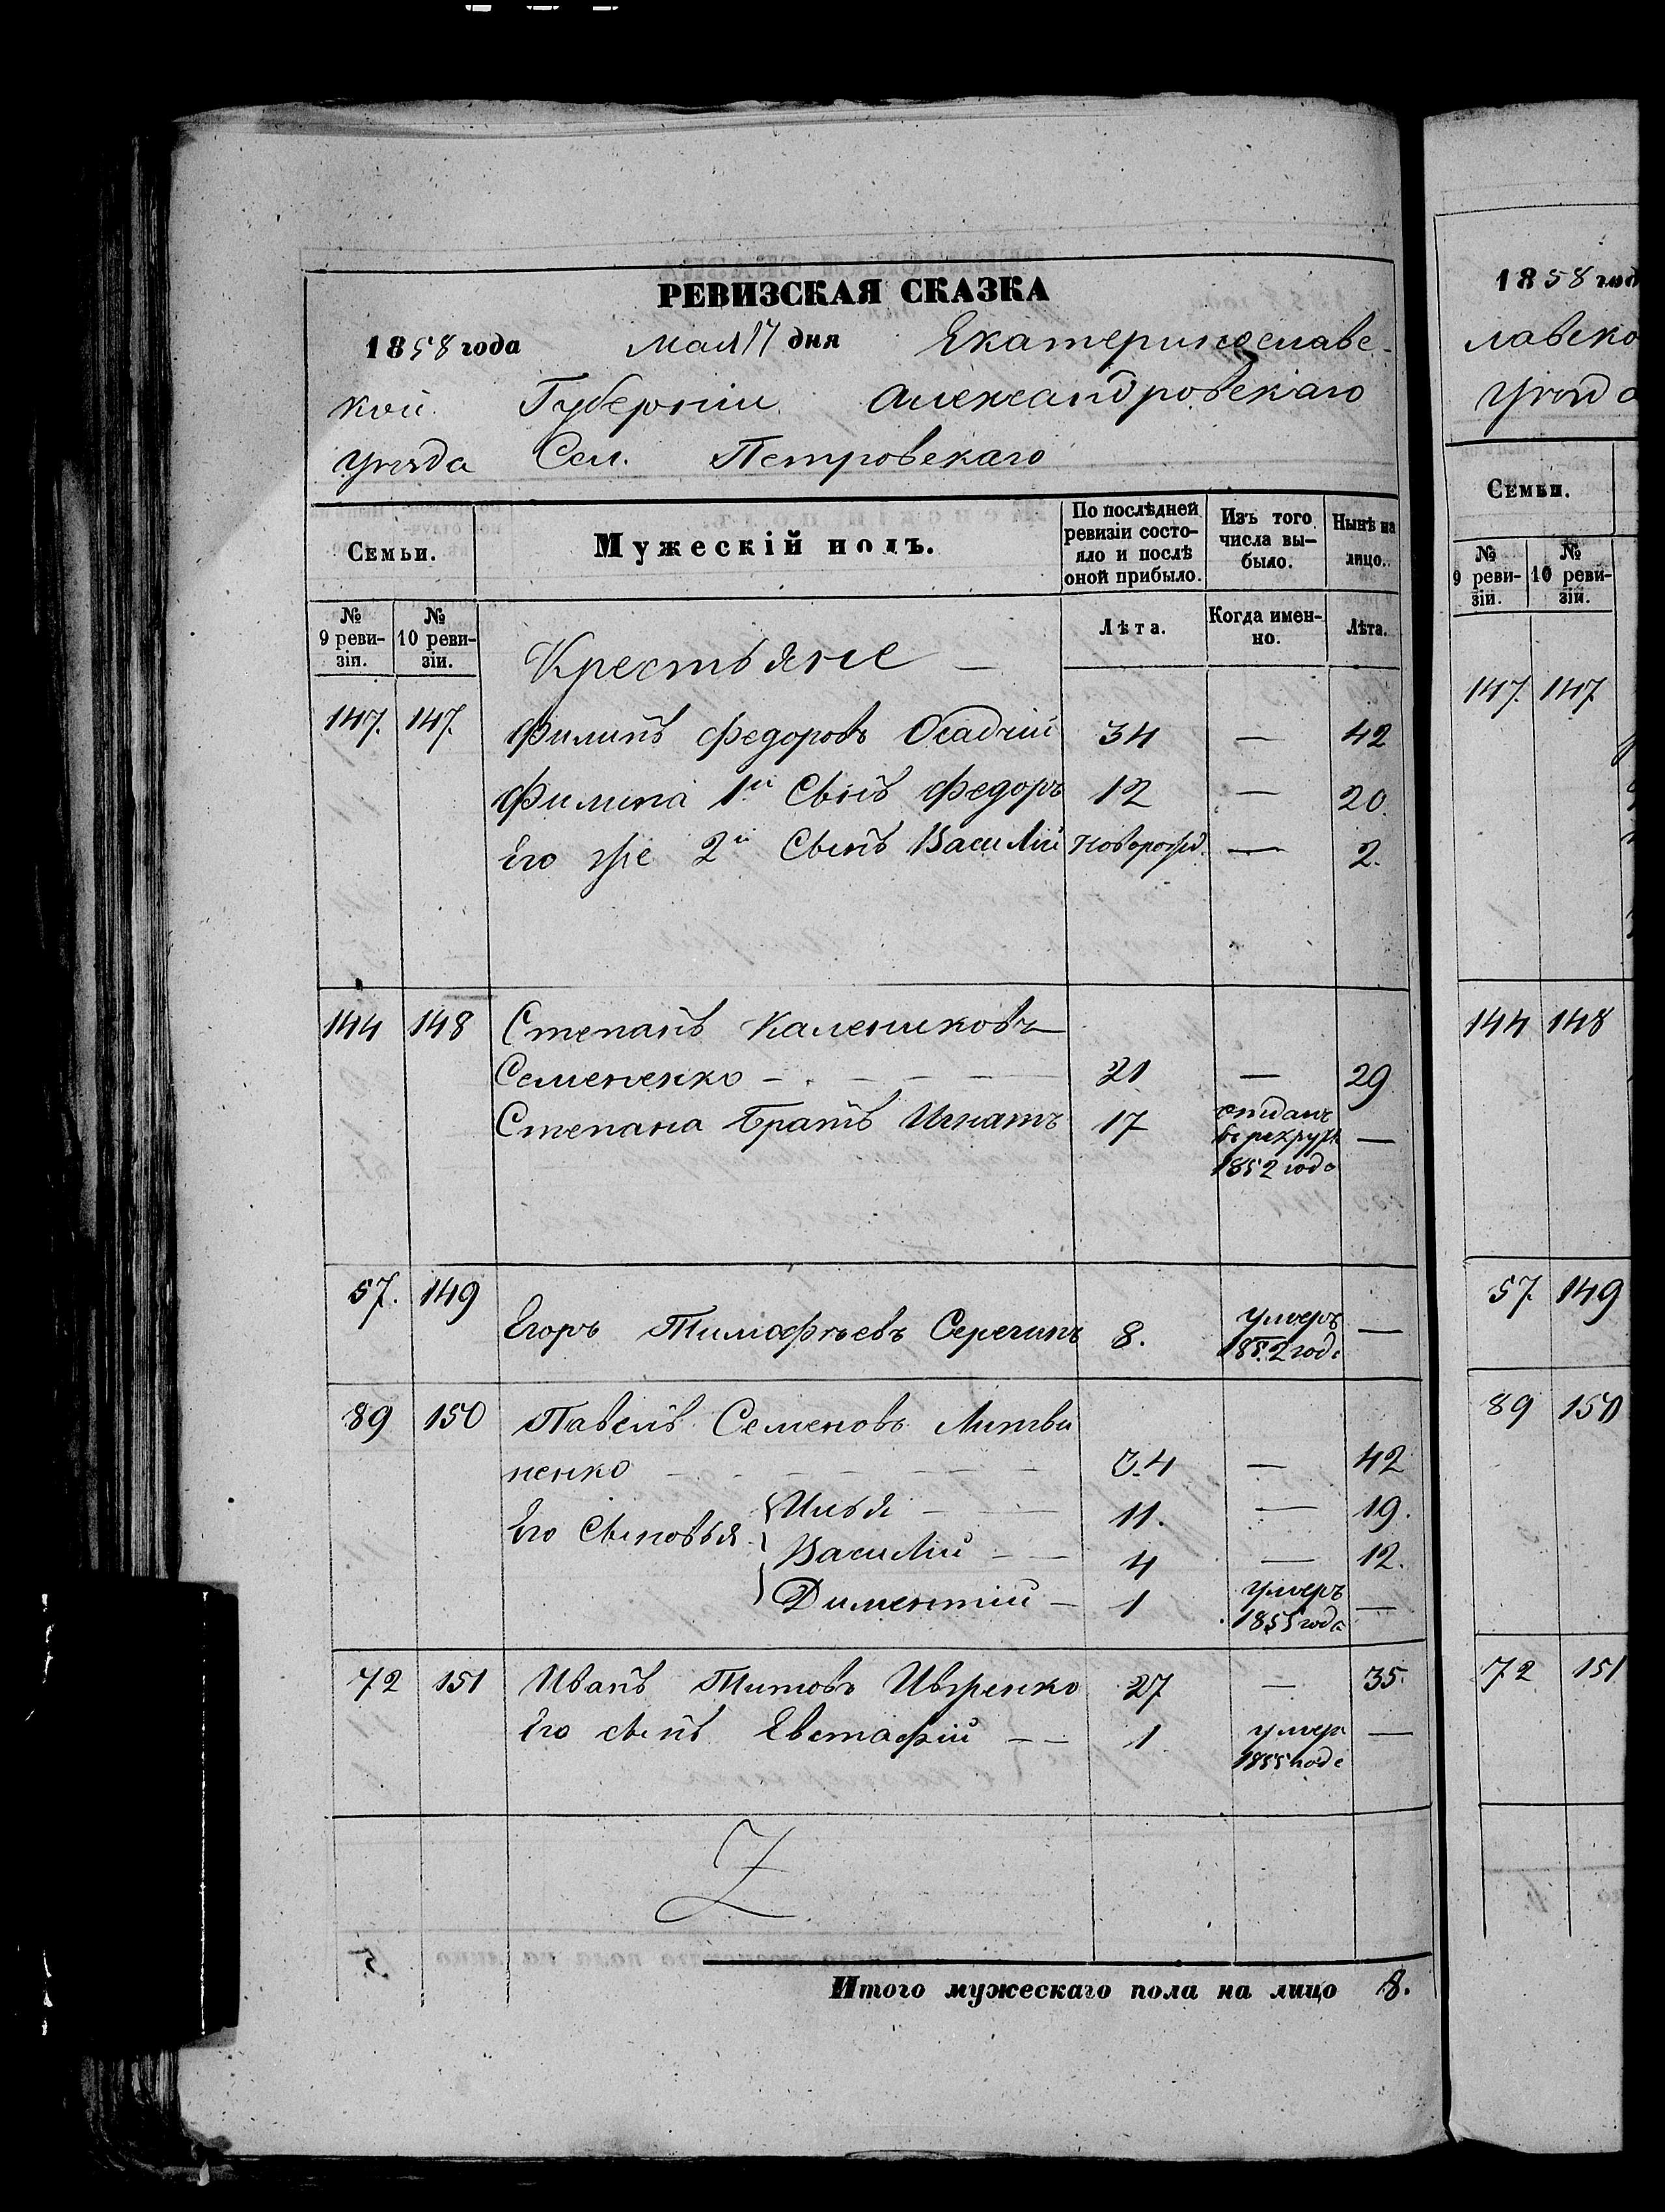 РЕВИЗСКАЯ СКАЗКА
1858 года Мая 17 дня Екатеринославс-
кой Губерніи Александровскаго
уезда Сел. Петровскаго
Семьи. Мужескій полъ. По послѣдней ревизіи состо-яло и послѣ оной прибыло. Изъ того числа вы-было. Нынѣ на лицо.
№ 9 реви-зіи. № 10 реви-зіи. Лѣта. Когда имен-но. Лѣта.
Крестьяне —
147. 147. Филипъ Федоровъ Осадчій 34 — 42
Филипа 1й Сынъ Федоръ 12 — 20.
Его же 2й Сынъ Василій новорожд. — 2.
144 148 Степанъ Калениковъ
Семененко — 21 — 29
Степана Братъ Игнатъ 17 отданъ —
въ рекруты
1852 года
57. 149 Егоръ Тимофѣевъ Серегинъ 8. умеръ —
1852 года
89 150 Павелъ Семеновъ Литви
ненко — 34 — 42
Его Сыновья Илья — 11. — 19.
Василій — 4 — 12.
Диментій — 1 умеръ —
1855 года
72 151 Иванъ Титовъ 27 — 35.
Его сынъ Евстафій — 1 умеръ —
1855 года
Z
Итого мужескаго пола на лицо 8.
1858 год
лавско
Уезда
Семьи.
№ 9 реви-зіи. № 10 реви-зіи.
147. 147.
144 148
57. 149
89 150
72 151